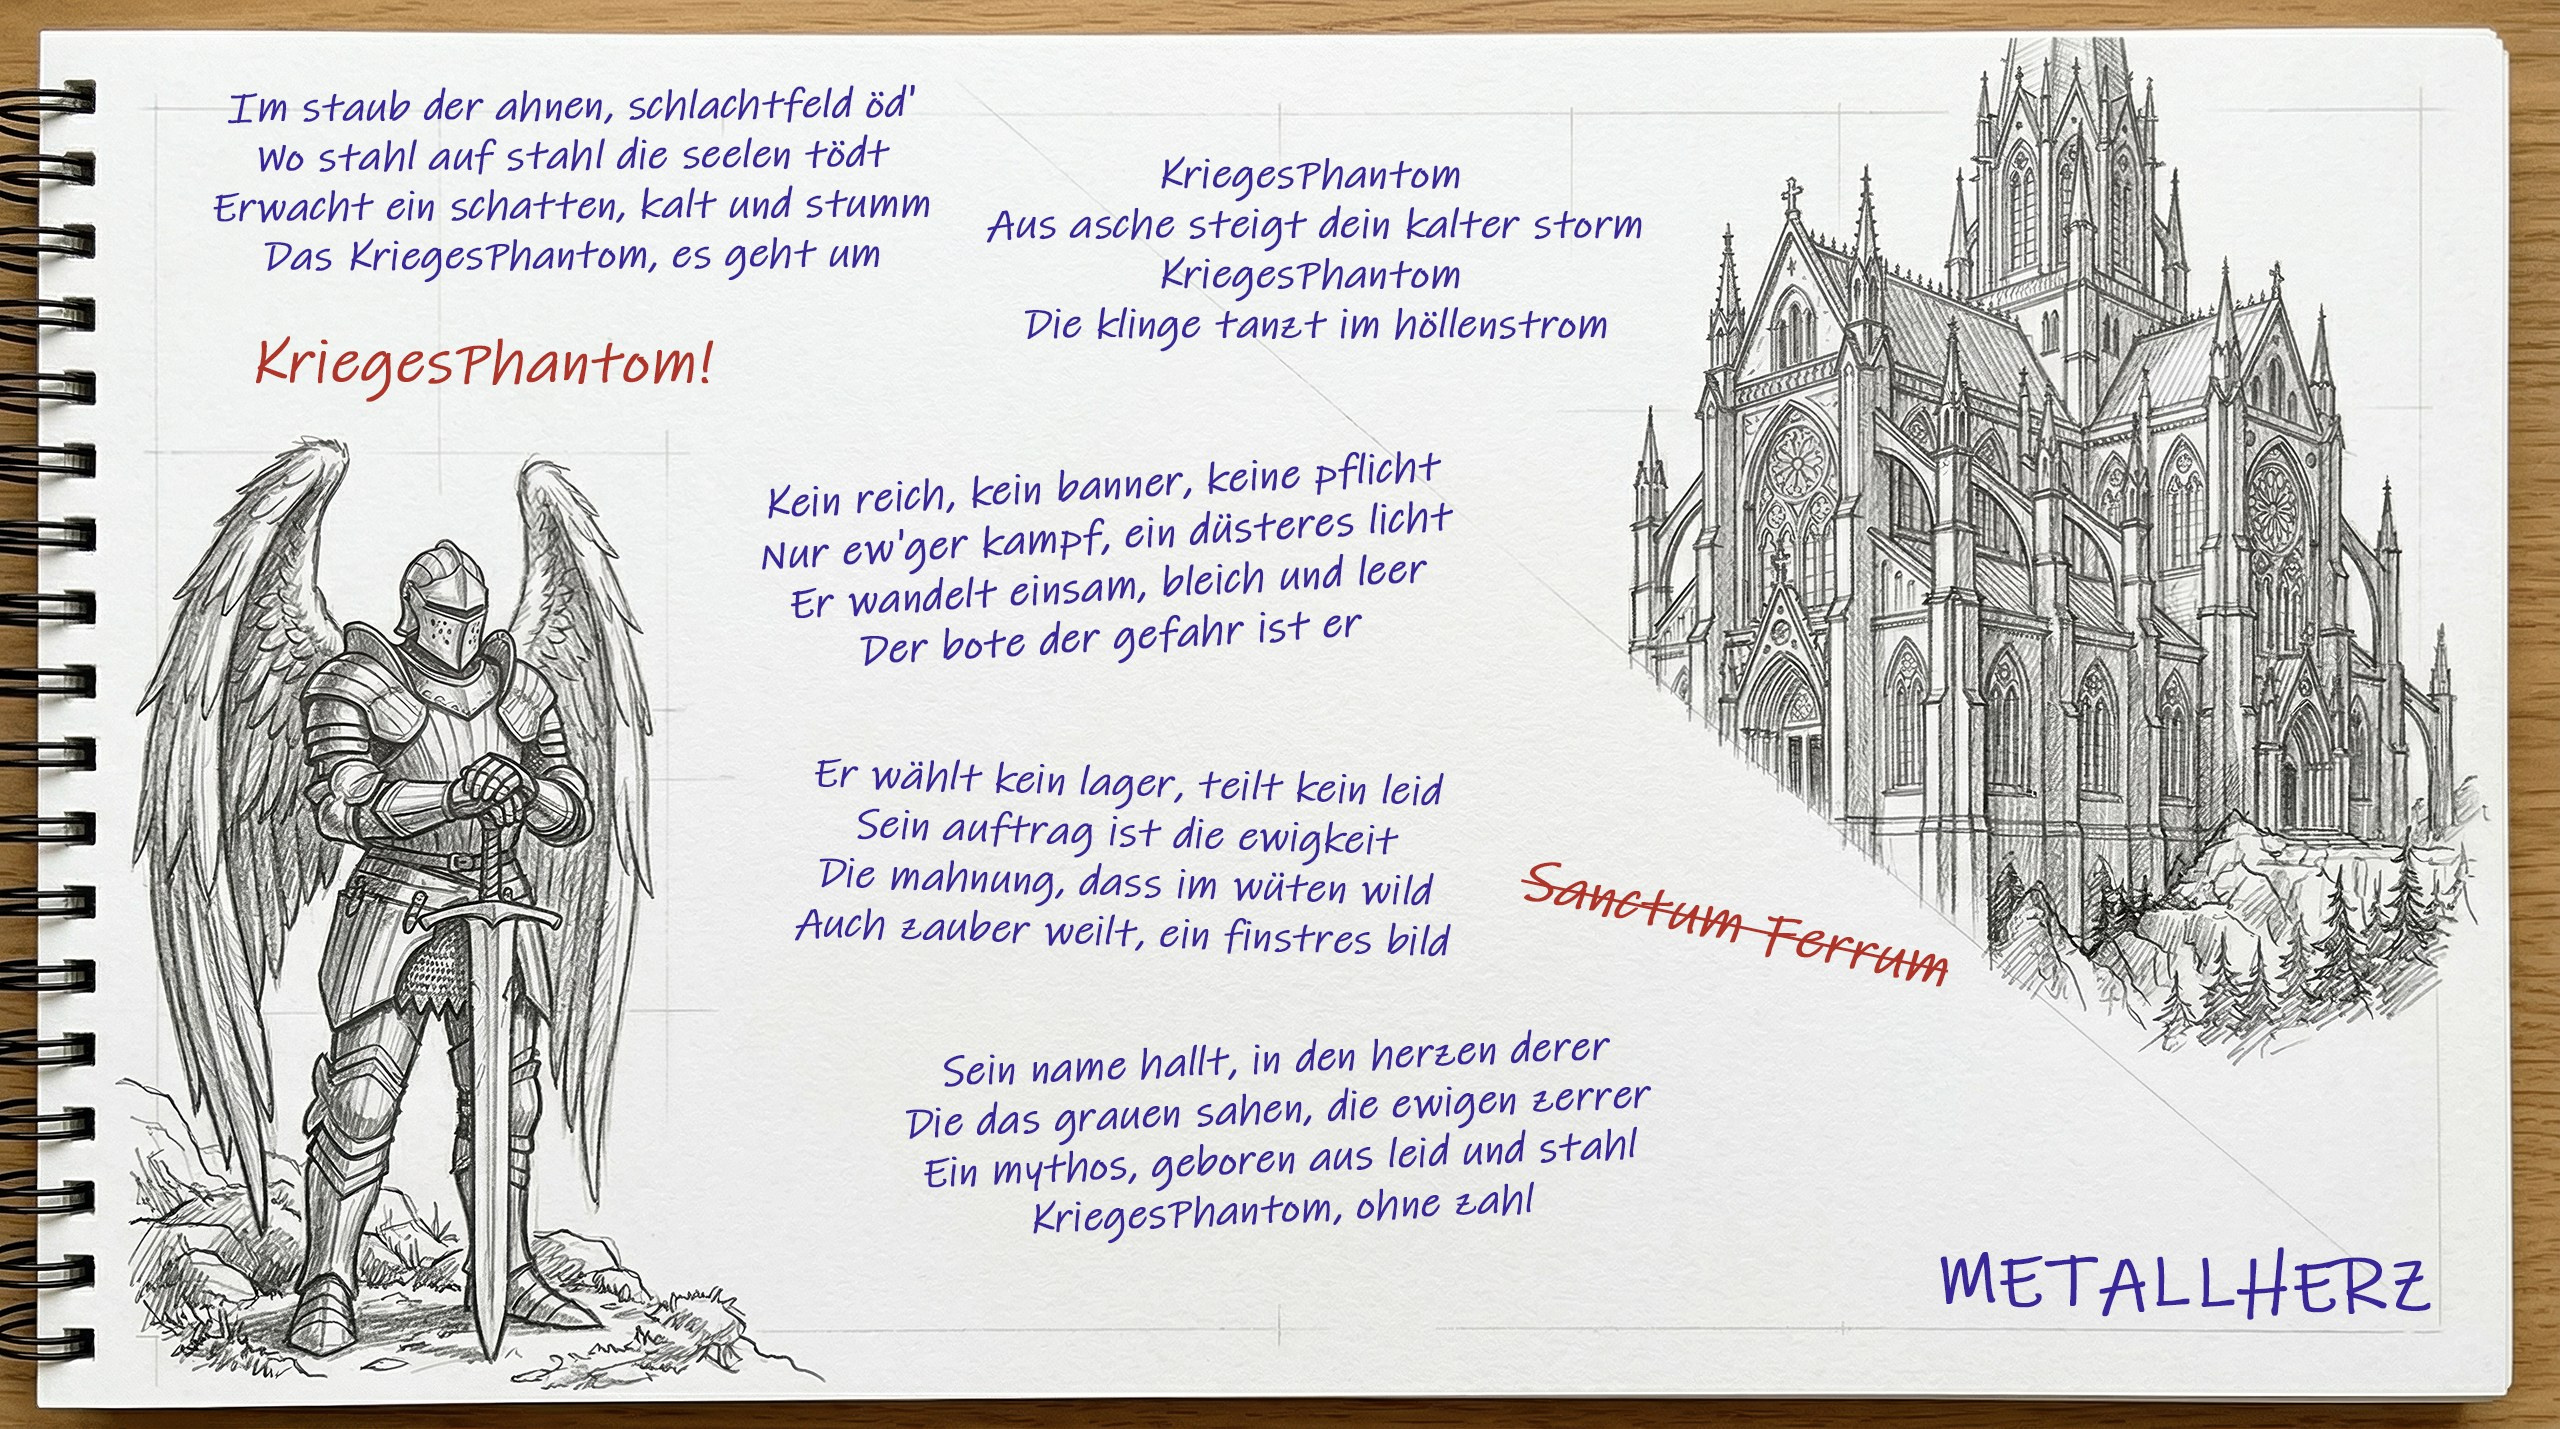 Im staub der ahnen, schlachtfeld öd'
Wo stahl auf stahl die seelen tödt
Erwacht ein schatten, kalt und stumm
Das KriegesPhantom, es geht um
KriegesPhantom!
KriegesPhantom
Aus asche steigt dein kalter storm
KriegesPhantom
Die klinge tanzt im höllenstrom
Kein reich, kein banner, keine pflicht
Nur ew'ger kampf, ein düsteres licht
Er wandelt einsam, bleich und leer
Der bote der gefahr ist er
Er wählt kein lager, teilt kein leid
Sein auftrag ist die ewigkeit
Die mahnung, dass im wüten wild
Auch zauber weilt, ein finstres bild
Sanctum Ferrum
Sein name hallt, in den herzen derer
Die das grauen sahen, die ewigen zerrer
Ein mythos, geboren aus leid und stahl
KriegesPhantom, ohne zahl
METALLHERZ